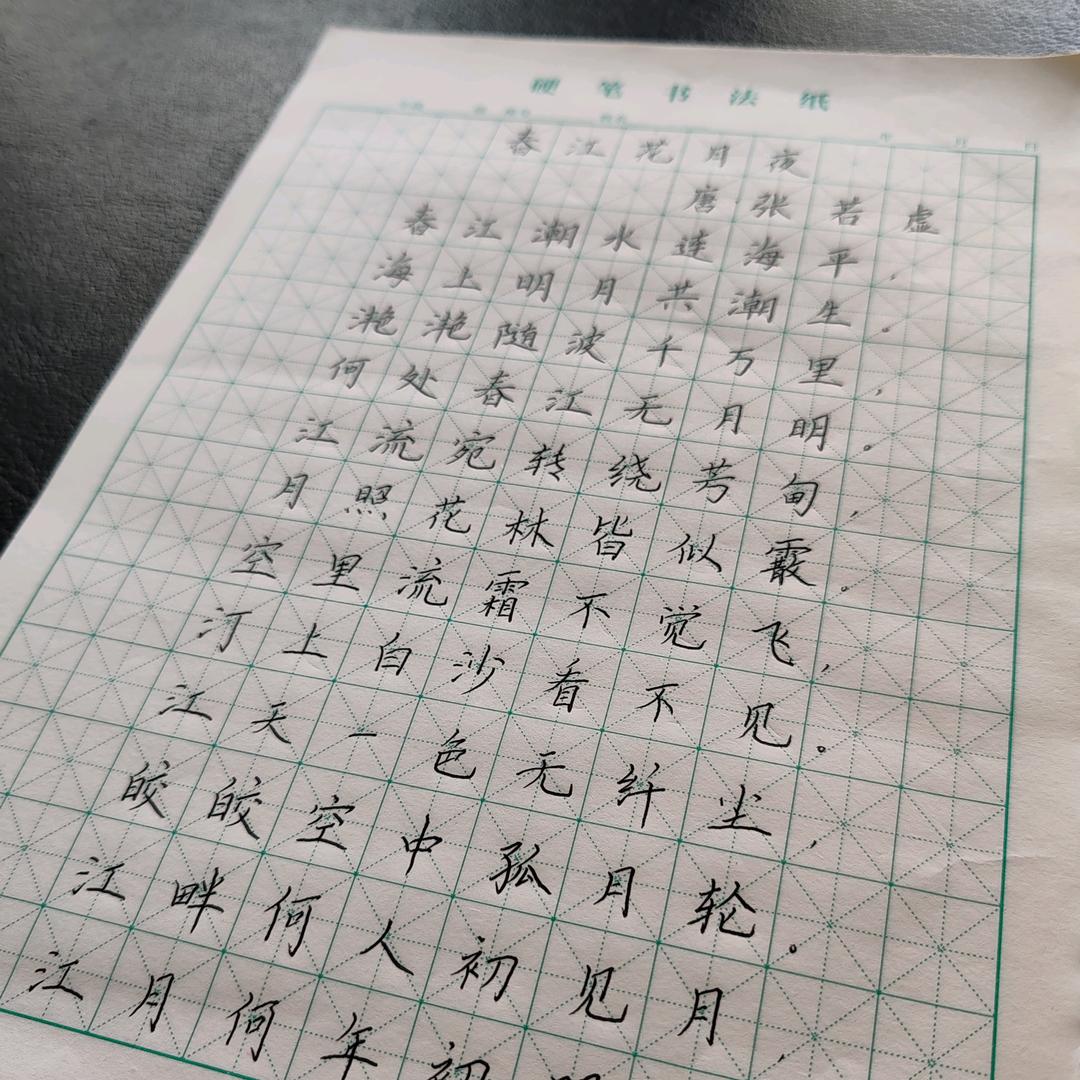 硬笔书法纸
年 月 日
春江花月夜
唐·张若虚
春江潮水连海平，
海上明月共潮生。
滟滟随波千万里，
何处春江无月明。
江流宛转绕芳甸，
月照花林皆似霰。
空里流霜不觉飞，
汀上白沙看不见。
江天一色无纤尘，
皎皎空中孤月轮。
江畔何人初见月，
江月何年初